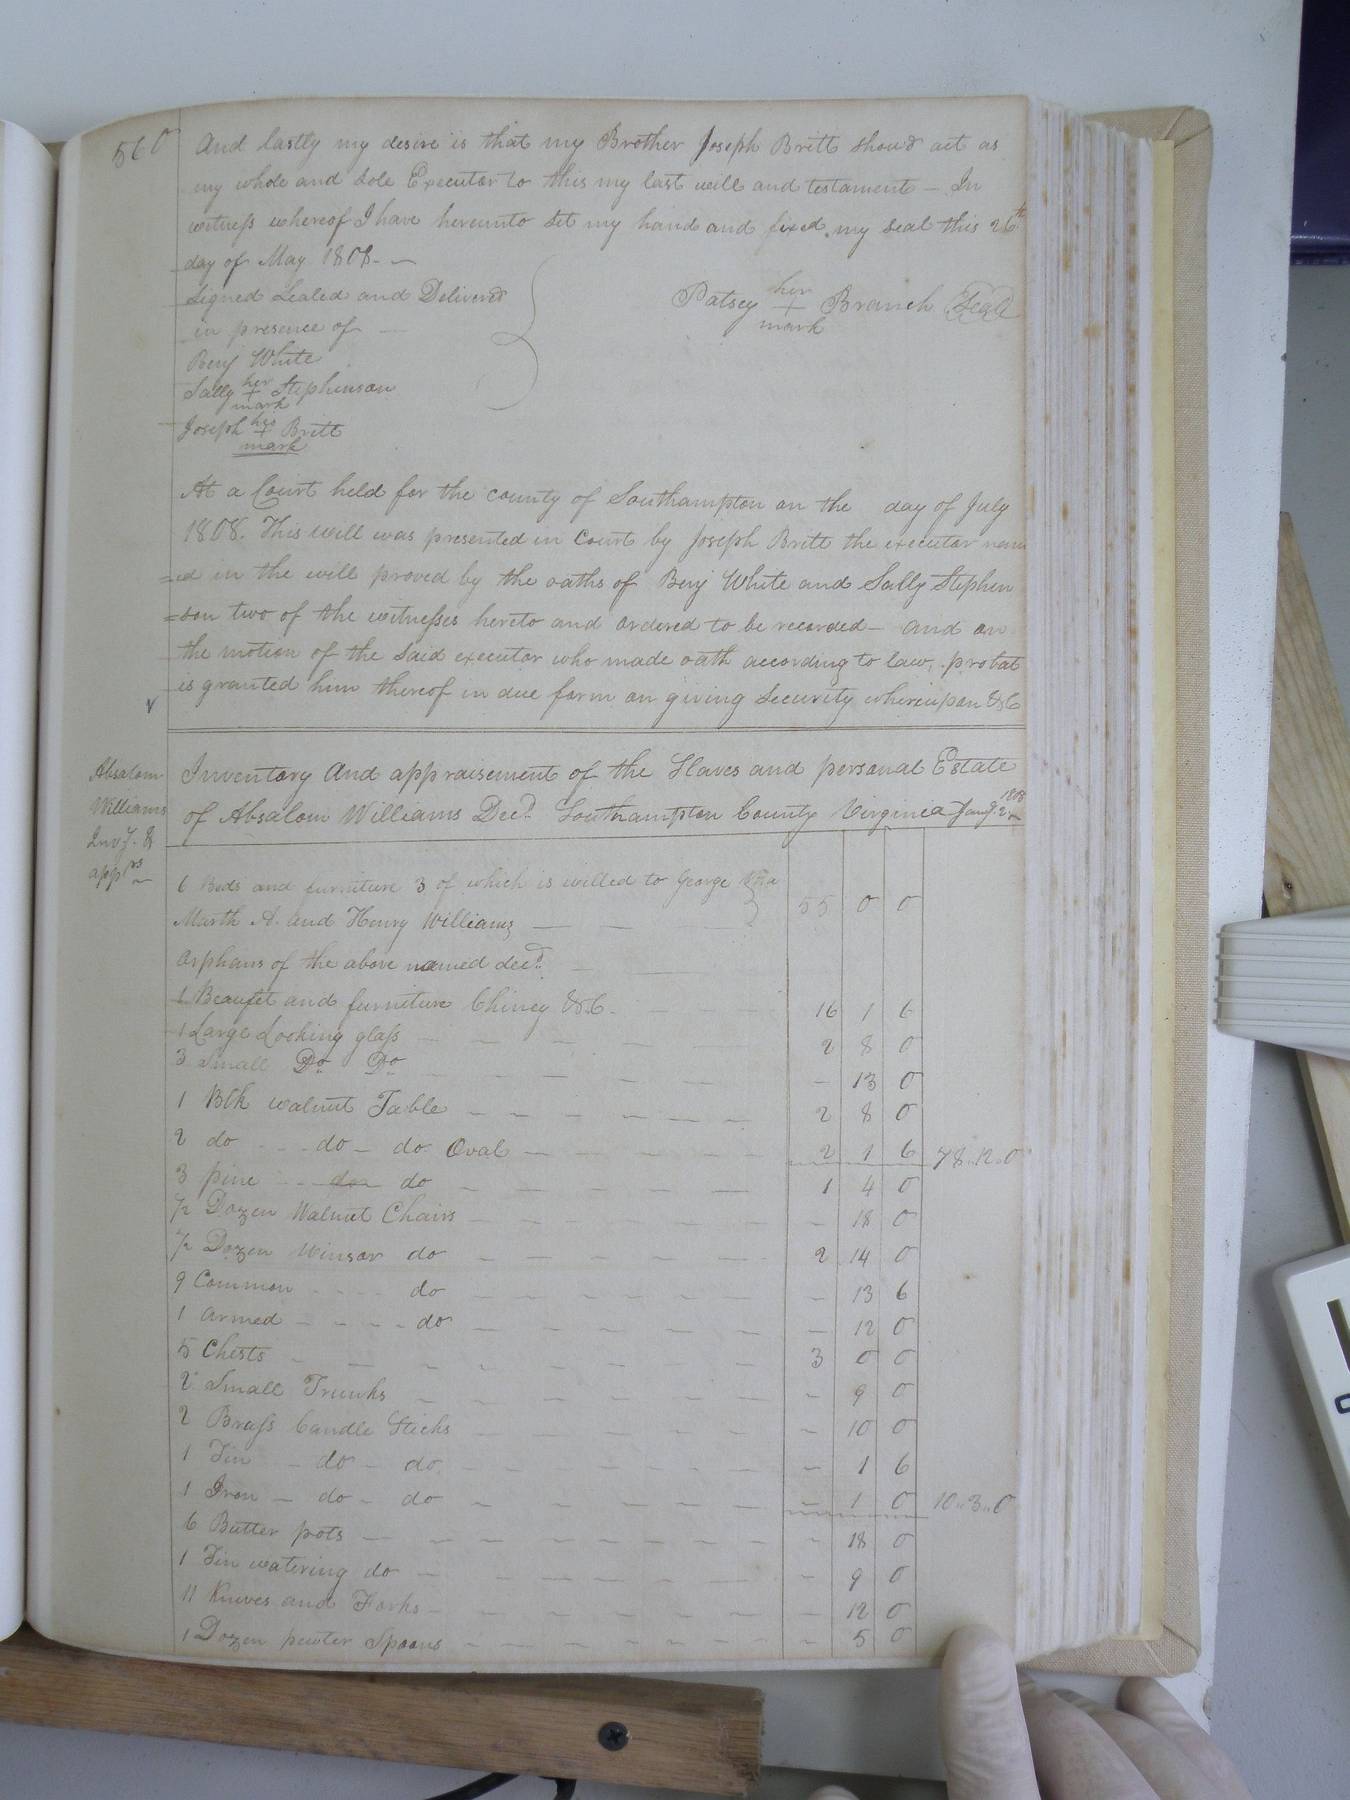 560
And lastly my desire is that my Brother Joseph Britt shoud act as
my whole and sole Executor to this my last will and testament - In
witness whereof I have hereunto set my hand and fixed my seal this 26th
day of May 1808 -
Signed Sealed and Deliverd
in presence of
Patsey her + mark Branch Seal
Benj White
Sally her + mark Stephenson
Joseph his + mark Britt
At a Court held for the county of Southampton on the day of July
1808. This will was presented in Court by Joseph Britt the executor nam
=ed in the will proved by the oaths of Benj White and Sally Stephen
=son two of the witnesses hereto and ordered to be recorded - and on
the motion of the said executor who made oath according to law, probat
is granted him thereof in due form on giving Security whereupon &C
Absalom
Williams
Invy. &
apprs
Inventory And appraisement of the Slaves and personal Estate
of Absalom Williams Decd. Southampton County Virginia Jany. 2 1808
6 Beds and furniture 3 of which is willed to George
Marth A. and Henry Williams 55 0 0
Orphans of the above named decd.
1 Beaufet and furniture Chiney &C. 16 1 6
1 Large Looking glass 2 8 0
3 Small Do Do - 13 0
1 Blk walnut Table 2 8 0
2 do - do - do Oval 2 1 6 78.12.0
3 pine - do do 1 4 0
1/2 Dozen Walnut Chairs - 18 0
1/2 Dozen Winsor do 2 14 0
9 Common do - 13 6
1 armed do - 12 0
5 Chests 3 0 0
2 Small Trunks - 9 0
2 Brass Candle Sticks - 10 0
1 Tin - do - do - 1 6
1 Iron - do - do - 1 0 10.3.0
6 Butter pots - 18 0
1 Tin watering do - 9 0
11 Knives and Forks - 12 0
1 Dozen pewter Spoons - 5 0